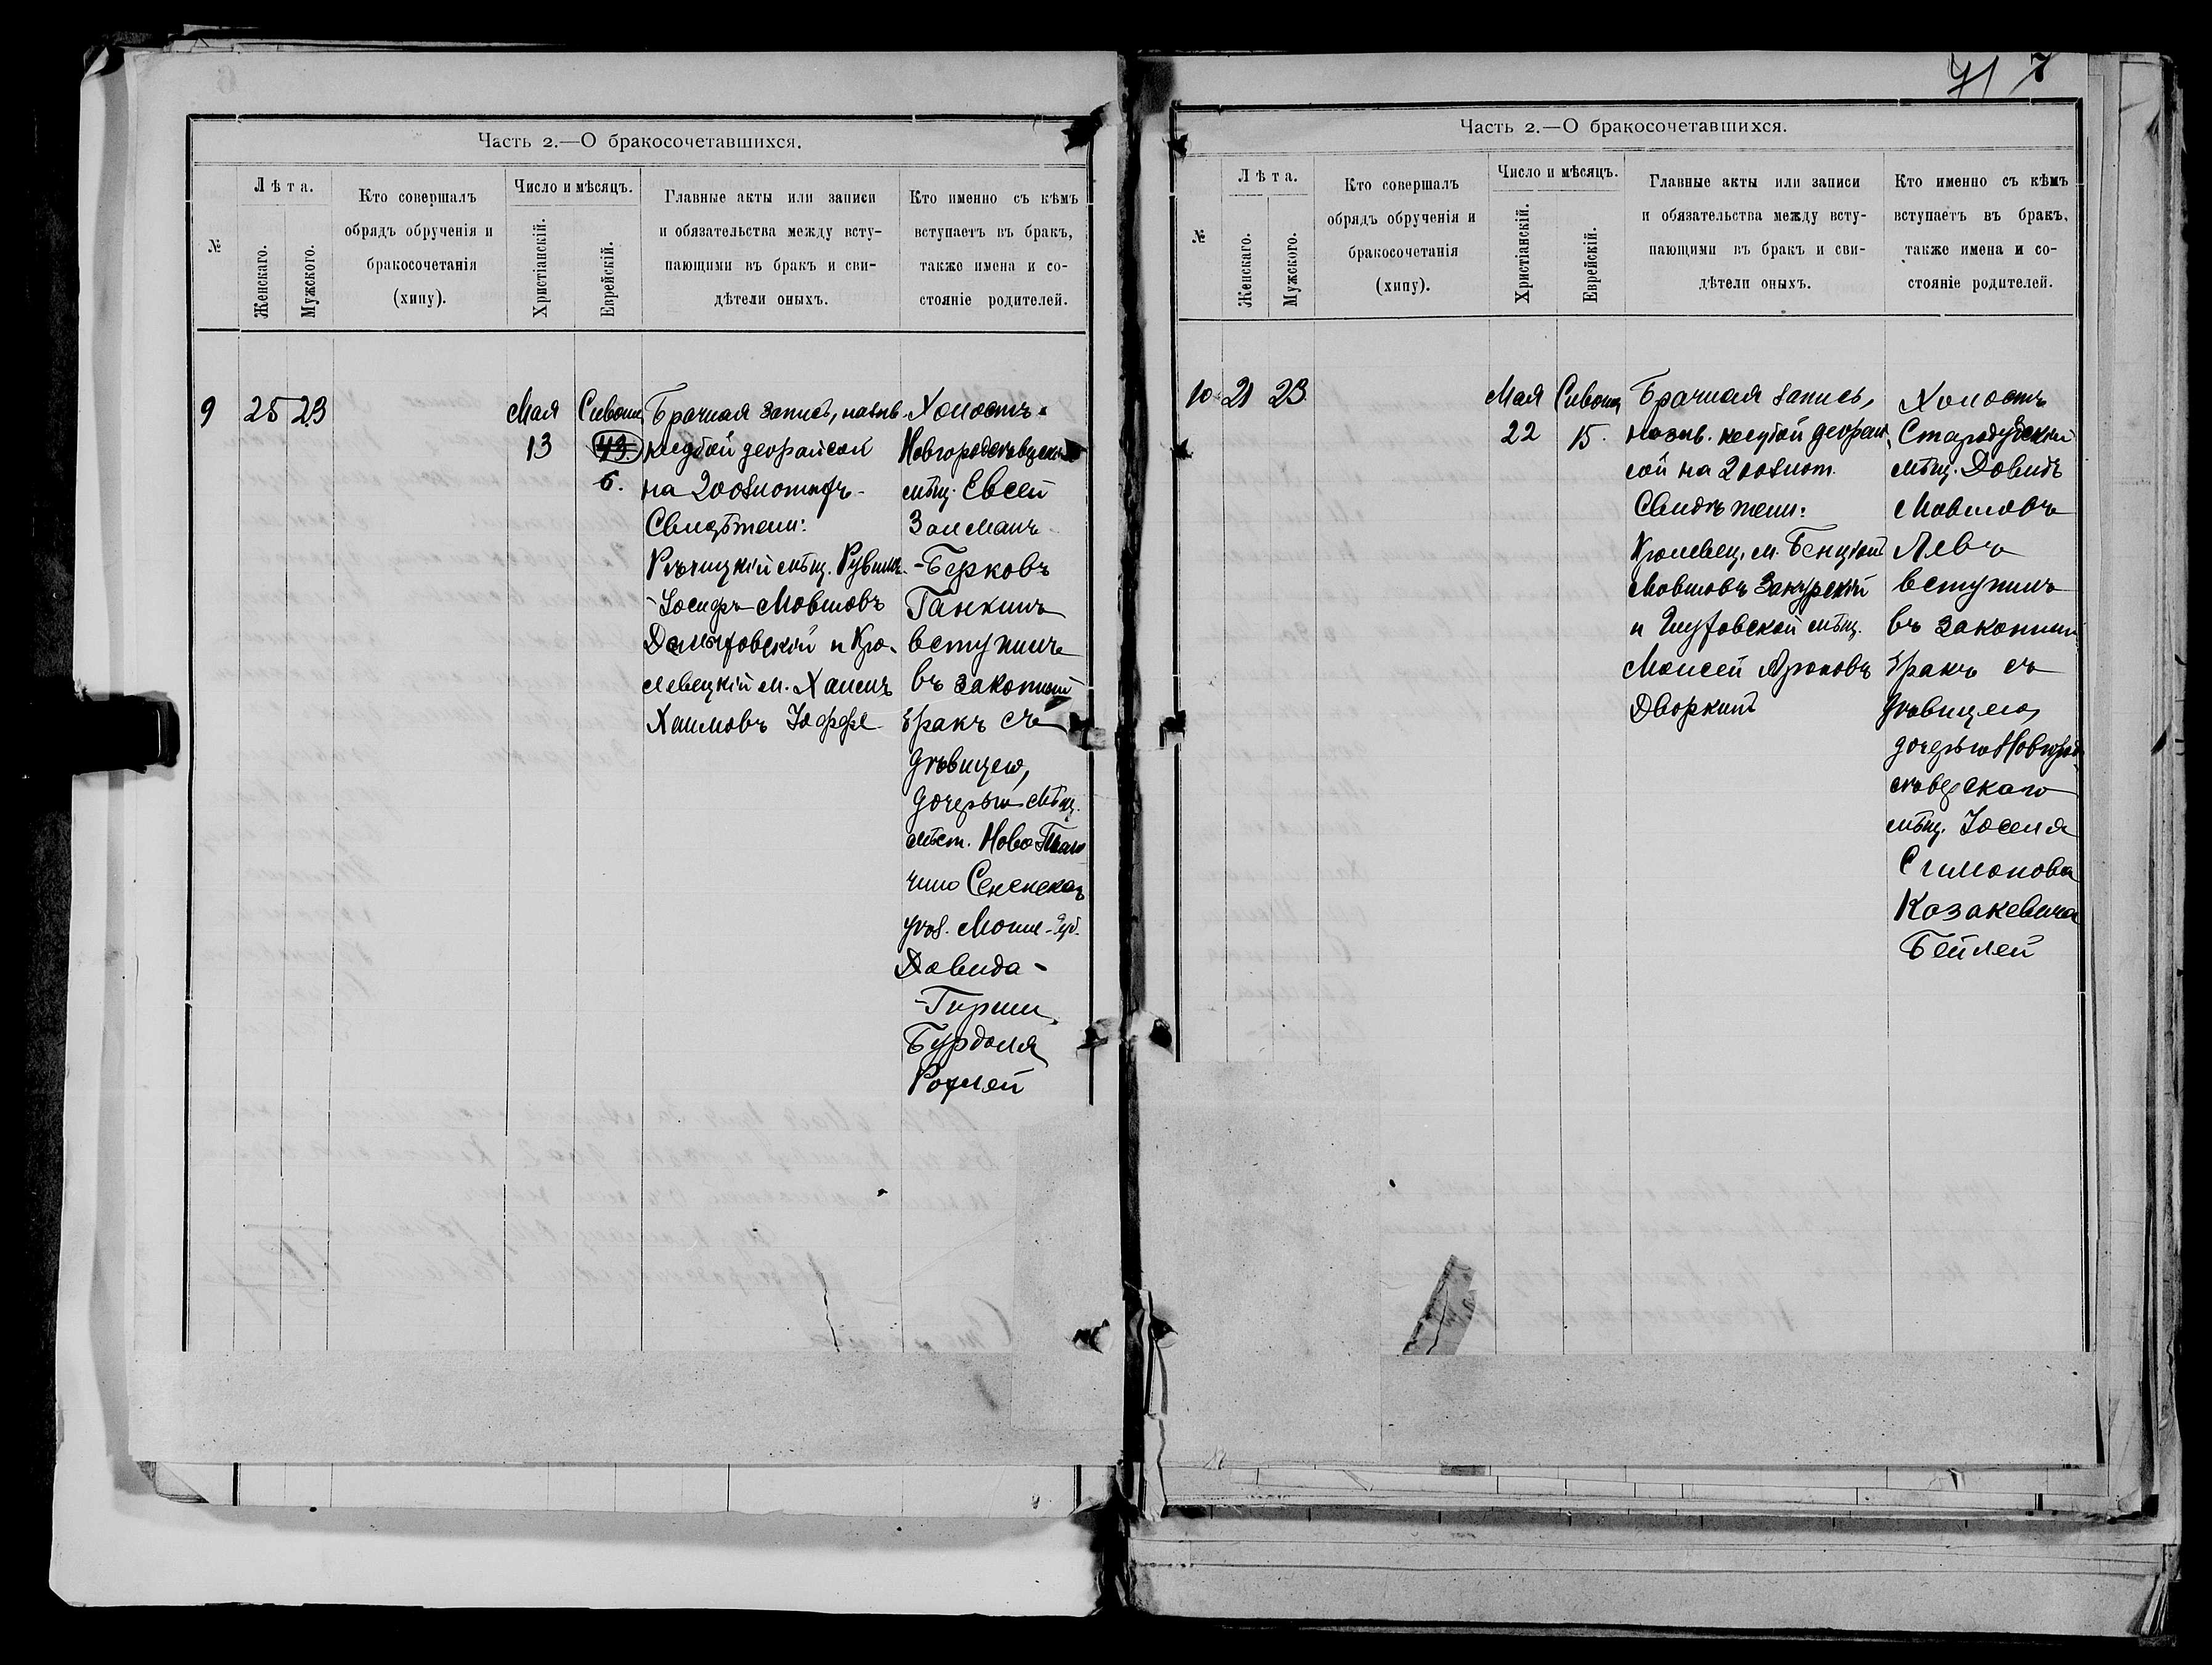 Часть 2.—О бракосочетавшихся.
№
Лѣта.
Женскаго.
Мужского.
Кто совершалъ
обрядъ обрученія и
бракосочетанія
(хипу).
Число и мѣсяцъ.
Христіанскій.
Еврейскій.
Главные акты или записи
и обязательства между всту-
пающими въ бракъ и сви-
дѣтели оныхъ.
Кто именно съ кѣмъ
вступаетъ въ бракъ,
также имена и со-
стояніе родителей.
9
25
23
Мая
13
Сивона
6.
Брачная запись, назыв.
кесубой деорайсой
на 200 злотыхъ.
Свидѣтели:
Рѣчицкій мѣщ. Рувинъ-
-Іосифъ Мовшовъ
и Кро-
левецкій м. Хаимъ
Хаимовъ Іоффе
Холостъ
Новгородсѣверскій
мѣщ. Евсей
Залманъ
-Берковъ
Ганкинъ
вступилъ
въ законный
бракъ съ
дѣвицею,
дочерью мѣщ.
мѣст.
уѣз. Могил. губ.
Давида-
-Гирши
Бурдоля
Рохлей
71 7
Часть 2.—О бракосочетавшихся.
№
Лѣта.
Женскаго.
Мужского.
Кто совершалъ
обрядъ обрученія и
бракосочетанія
(хипу).
Число и мѣсяцъ.
Христіанскій.
Еврейскій.
Главные акты или записи
и обязательства между всту-
пающими въ бракъ и сви-
дѣтели оныхъ.
Кто именно съ кѣмъ
вступаетъ въ бракъ,
также имена и со-
стояніе родителей.
10
21
23
Мая
22
Сивона
15.
Брачная запись,
назыв. кесубой деорай
сой на 200 злот.
Свидѣтели:
Кролевец. м.
Мовшовъ Закурскій
и Глуховской мѣщ.
Моисей Ароновъ
Дворкинъ
Холостъ
Стародубскій
мѣщ. Довидъ
Мовшовъ
Левъ
вступилъ
въ законный
бракъ съ
дѣвицею,
дочерью Новгород
сѣверскаго
мѣщ. Іоселя
Симонова
Козакевича
Бейлей